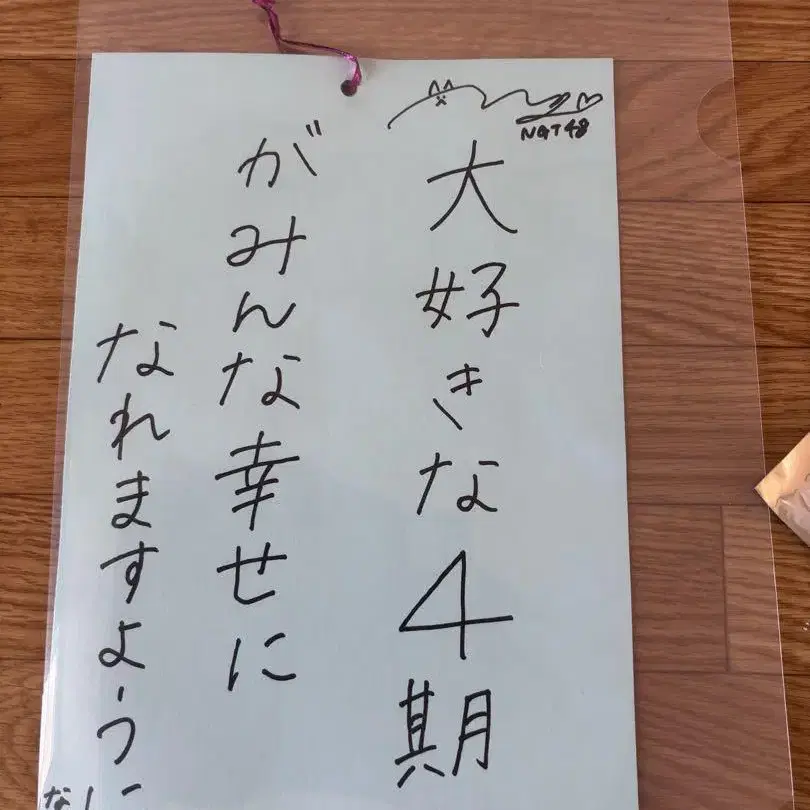 NGT48
大好きな4期
がみんな幸せに
なれますように